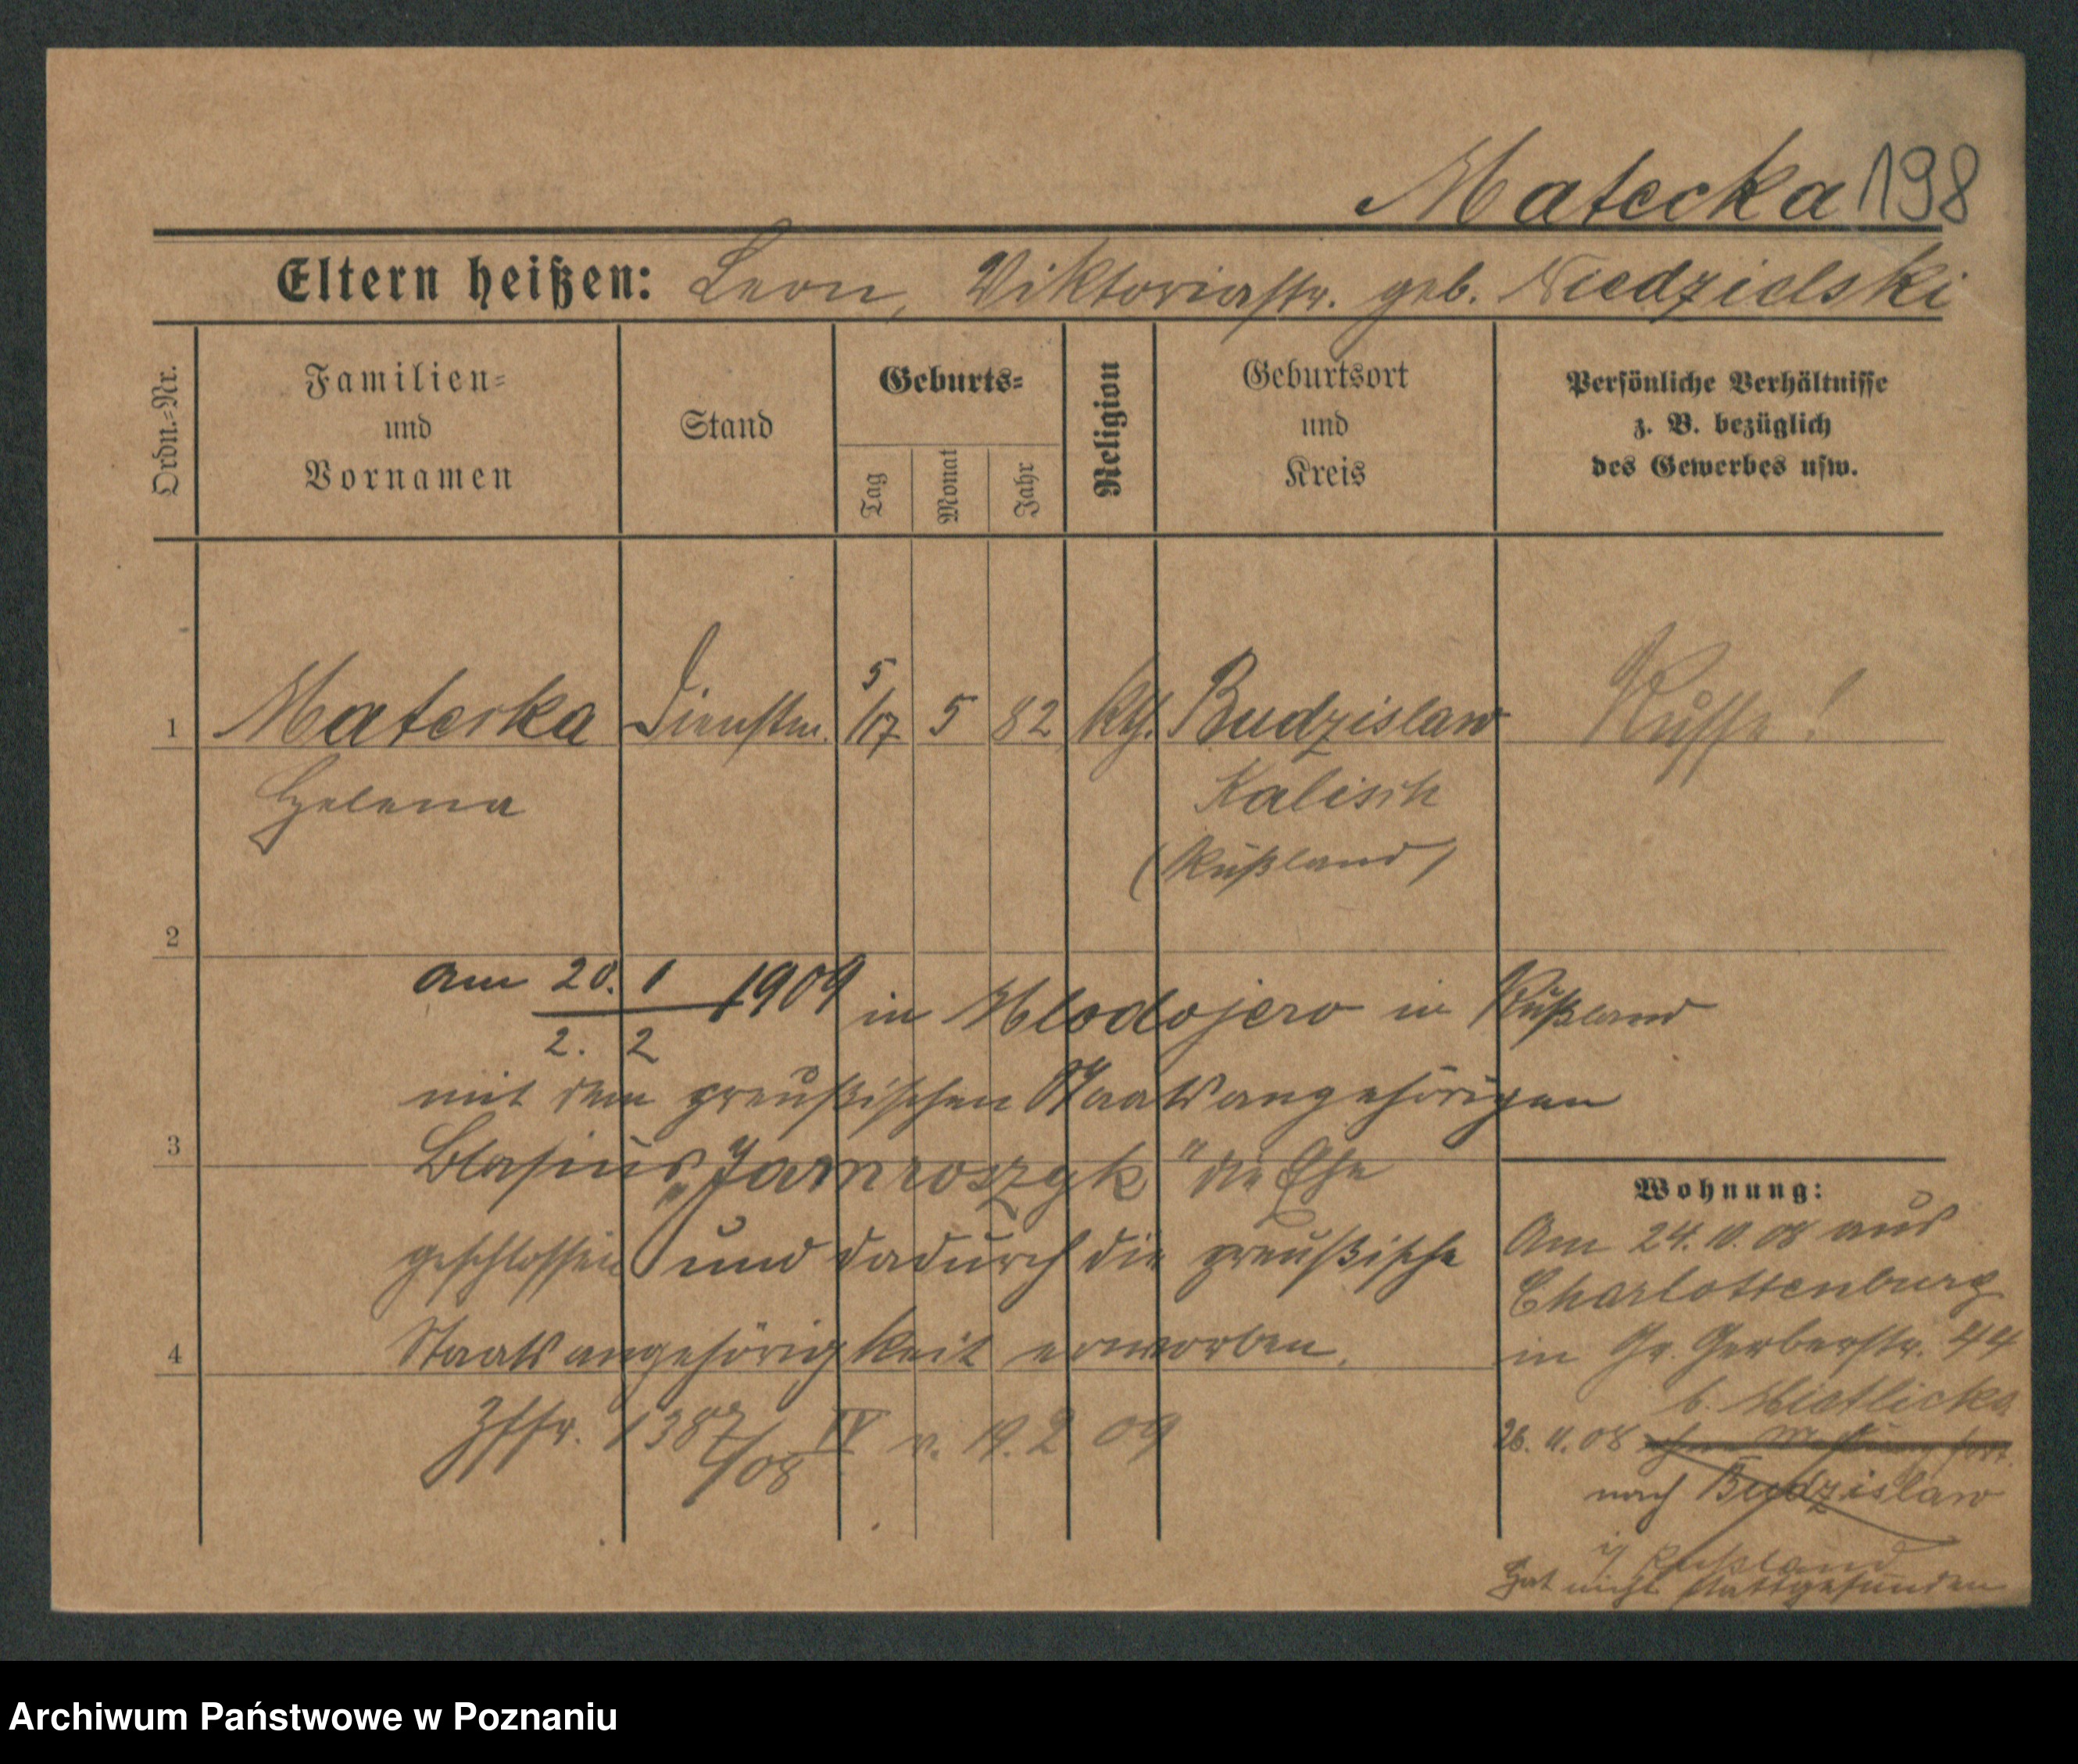 Matecka 198
Eltern heißen: Leon, Viktoria geb. Niedzielski
Ordn.=Nr.
Familien=
und
Vornamen
Stand
Geburts=
Tag
Monat
Jahr
Religion
Geburtsort
und
Kreis
Persönliche Verhältnisse
z. B. bezüglich
des Gewerbes usw.
5
1 Matecka Dienstm. /17 5 82 kth. Budzislaw Russe!
Helena Kalisch
(Rußland)
2
am 20. 1 1909 in Mlodojero in Rußland
2. 2
mit dem preußischen Staatsangehörigen
3 Blasius „Jamroszyk" die Ehe
geschlossen und dadurch die preußische
4 Staatsangehörigkeit erworben.
1387/08 IV v. 19. 2. 09
Wohnung:
Am 24. 10. 08 aus
Charlottenburg
in Gr. Gerberstr. 44
b.
26. 11. 08
nach Budzislaw
i/ Rußland
hat nicht stattgefunden
Archiwum Państwowe w Poznaniu